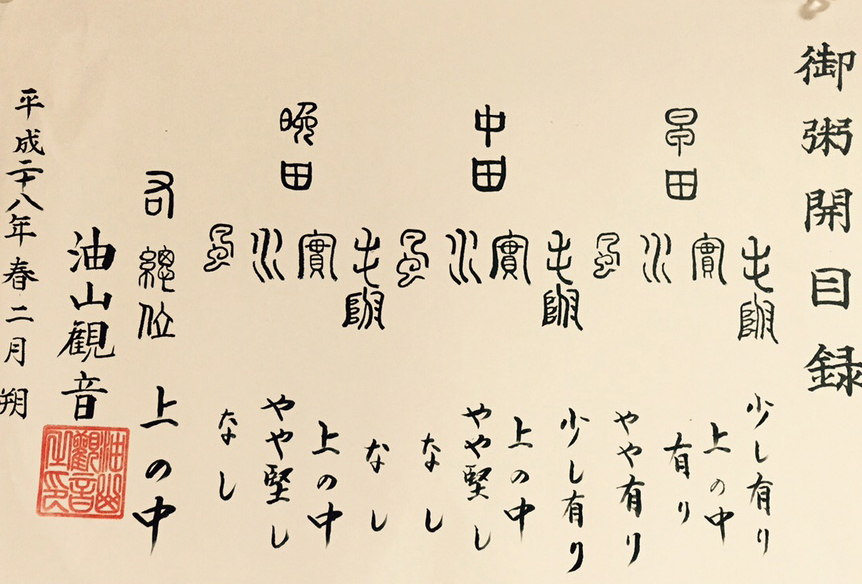 御粥開目録
早田
少し有り
實 上の中
水 有り
風 やや有り
中田
少し有り
實 上の中
水 やや堅し
風 なし
晩田
なし
實 上の中
水 やや堅し
風 なし
右總位 上の中
油山觀音
油山觀音之印
平成二十八年春二月朔